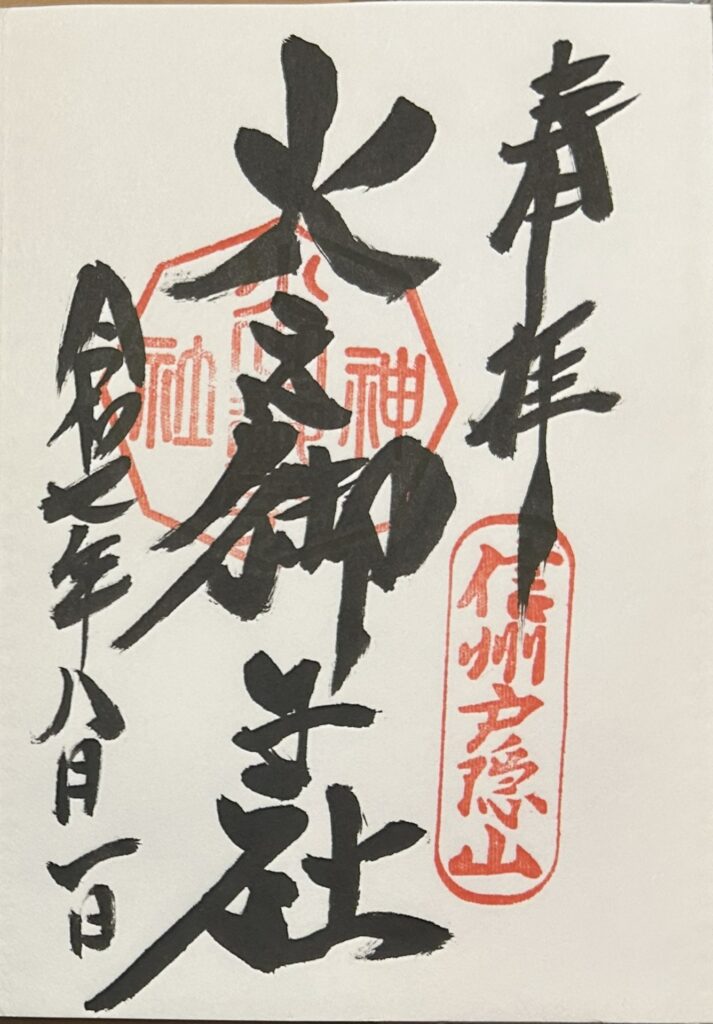 奉拝
信州戸隠山
火之御子社
神
社
令和七年八月一日